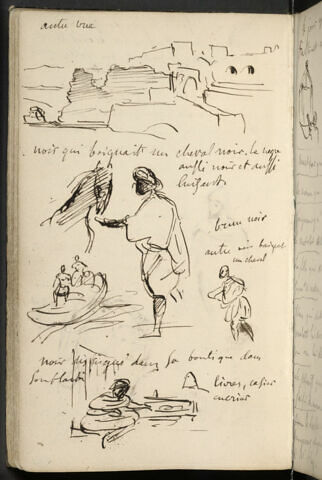 autre vue
noir qui baignait un cheval noir. le negre
aussi noir et aussi
luisant.
brun noir
autre noir baignant
un cheval
noir dans sa boutique dans
livres, casier